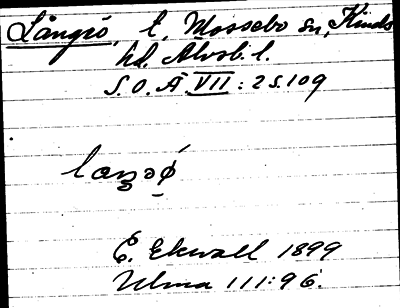 Långsö, t, Mossebo sn, Kinds
hd. Älvsb. l.
S.O.Ä VII: 2 s. 109
E. Ekwall 1899
Ulma 111:96.